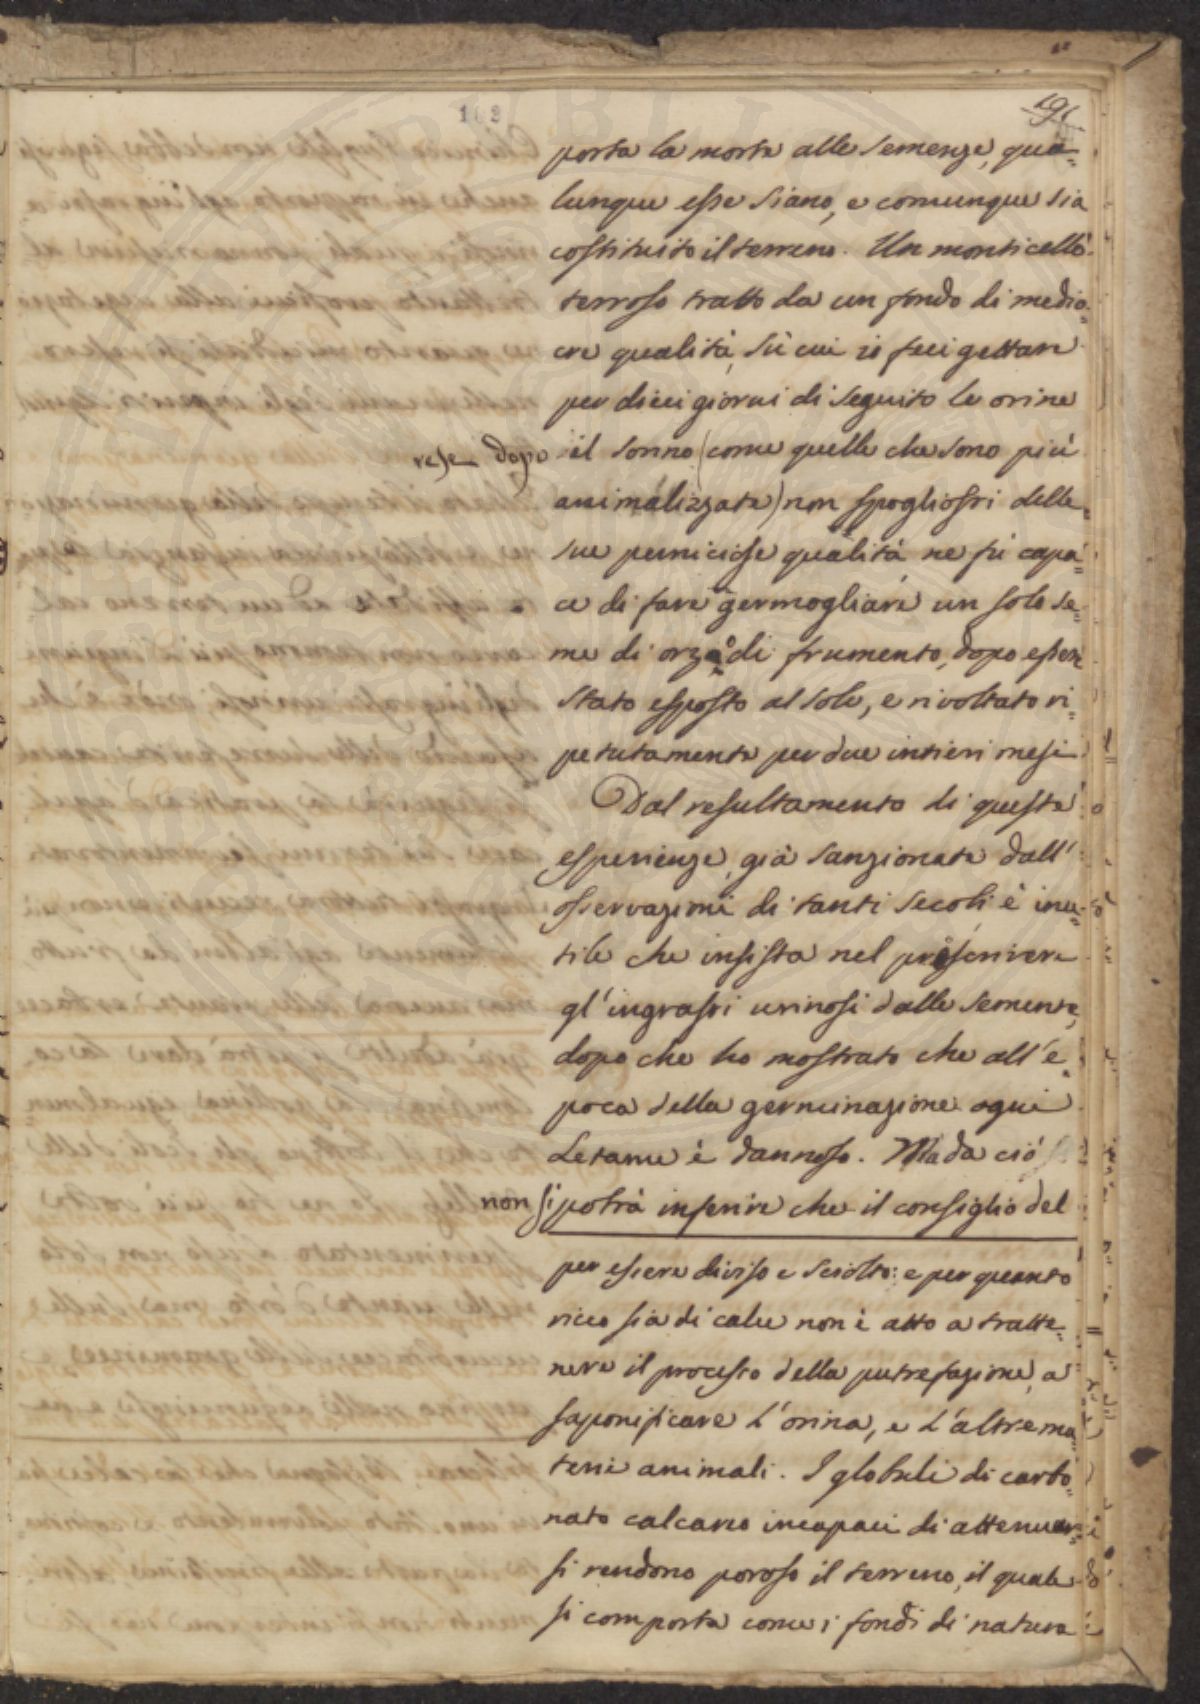 102
191
porta la morte alle semenze, qua=
lunque esse siano, e comunque sia
costituito il terreno. Un monticello
terroso tratto da un fondo di medio=
cre qualità, sù cui io feci gettare
per dieci giorni di seguito le orine
rese dopo il sonno (come quelle che sono più
animalizzate) non spogliossi delle
sue perniciose qualità ne fù capa=
ce di fare germogliare un solo se=
me di orzo, o di frumento, dopo essere
stato esposto al sole, e rivoltato ri=
petutamente per due intieri mesi
Dal resultamento di queste
esperienze, già sanzionate dall'
osservazioni di tanti secoli, è inu=
tile che insista nel proscrivere
gl'ingrassi urinosi dalle semente,
dopo che ho mostrato che all'e=
poca della germinazione ogni
Letame è dannoso. Ma da ciò
non si potrà inferire che il consiglio del
per essere diviso e sciolto: e per quanto
ricco sia di calce non è atto a tratte=
nere il processo della putrefazione, a
saponificare l'orina, e l'altre ma=
terie animali. I globuli di carbo=
nato calcareo incapaci di attenuar=
si rendono poroso il terreno, il quale
si comporta come i fondi di natura